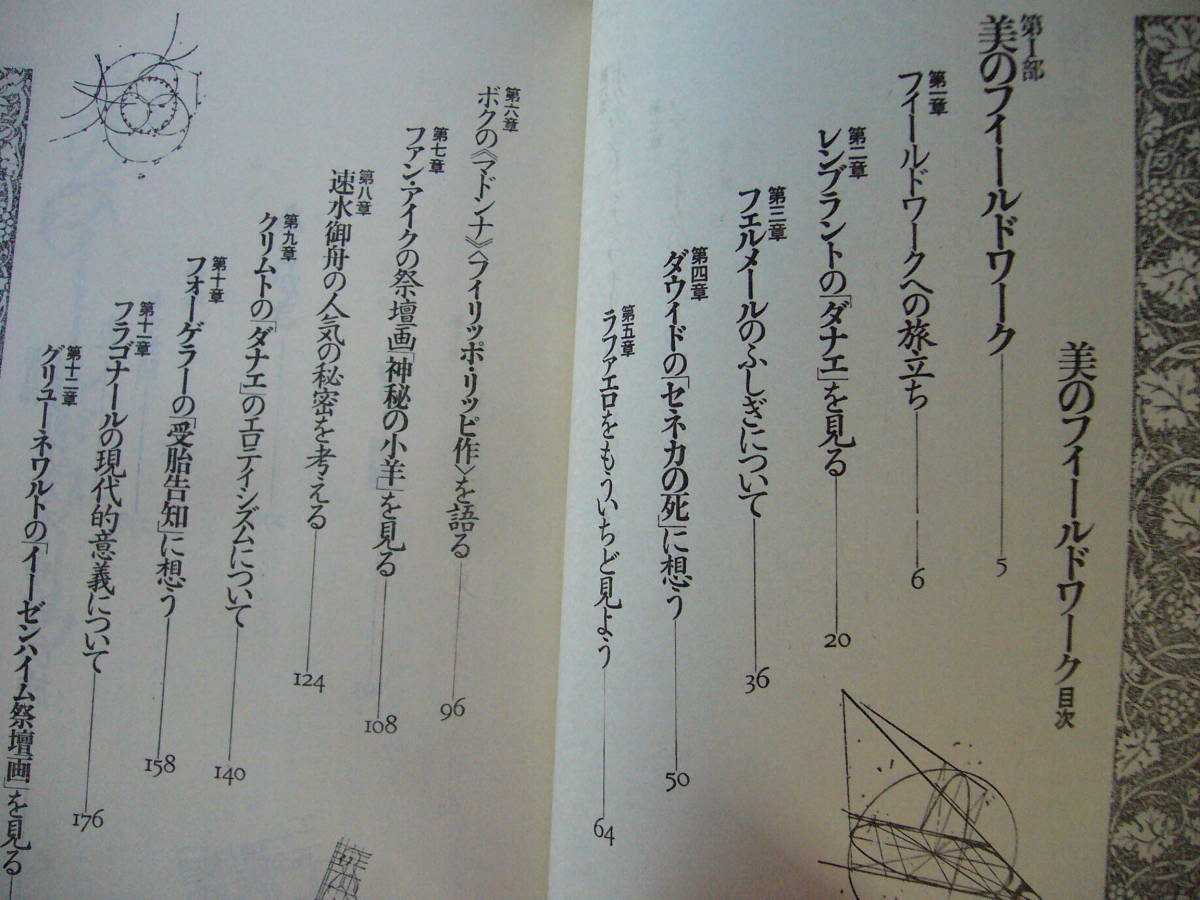 美のフィールドワーク 目次
第Ⅰ部
美のフィールドワーク 5
第一章
フィールドワークへの旅立ち 6
第二章
レンブラントの「ダナエ」を見る 20
第三章
フェルメールのふしぎについて 36
第四章
ダウイドの「セネカの死」に想う 50
第五章
ラファエロをもういちど見よう 64
第六章
ボクの《マドンナ》〈フィリッポ・リッピ作〉を語る 96
第七章
ファン・アイクの祭壇画「神秘の小羊」を見る 108
第八章
速水御舟の人気の秘密を考える 124
第九章
クリムトの「ダナエ」のエロティシズムについて 140
第十章
フォーゲラーの「受胎告知」に想う 158
第十一章
フラゴナールの現代的意義について 176
第十二章
グリューネワルトの「イーゼンハイム祭壇画」を見る